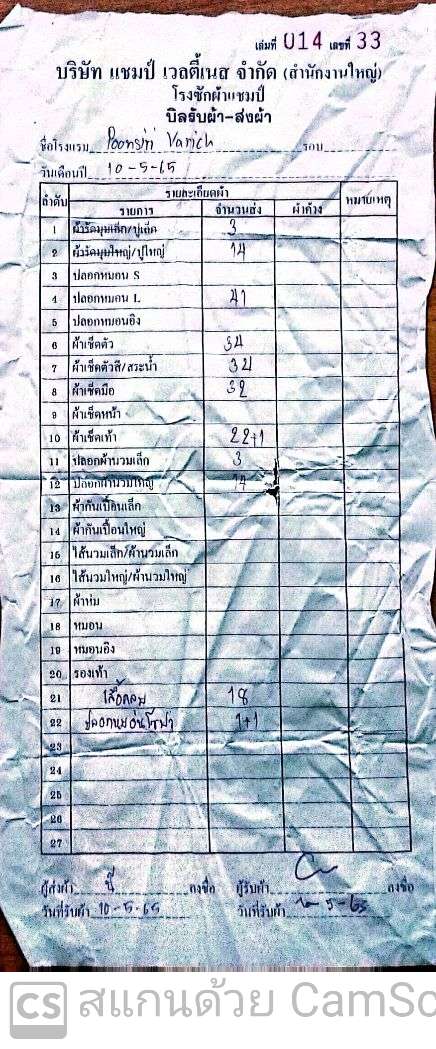 เล่มที่ 014 เลขที่ 33
บริษัท แชมป์ เวลตี้เนส จำกัด (สำนักงานใหญ่)
โรงซักผ้าแชมป์
บิลรับผ้า-ส่งผ้า
ชื่อโรงแรม Poonsiri Varich รอบ
วันเดือนปี 10-5-65
ลำดับ รายละเอียดผ้า หมายเหตุ
รายการ จำนวนส่ง ผ้าค้าง
1 ผ้ารัดมุมเล็ก/ปูเล็ก 3
2 ผ้ารัดมุมใหญ่/ปูใหญ่ 14
3 ปลอกหมอน S
4 ปลอกหมอน L 41
5 ปลอกหมอนอิง
6 ผ้าเช็ดตัว 34
7 ผ้าเช็ดตัวสี/สระน้ำ 34
8 ผ้าเช็ดมือ 32
9 ผ้าเช็ดหน้า
10 ผ้าเช็ดเท้า 22+1
11 ปลอกผ้านวมเล็ก 3
12 ปลอกผ้านวมใหญ่ 14
13 ผ้ากันเปื้อนเล็ก
14 ผ้ากันเปื้อนใหญ่
15 ไส้นวมเล็ก/ผ้านวมเล็ก
16 ไส้นวมใหญ่/ผ้านวมใหญ่
17 ผ้าห่ม
18 หมอน
19 หมอนอิง
20 รองเท้า
21 เสื้อคลุม 18
22 ปลอกหมอนโซฟา 1+1
23
24
25
26
27
ผู้ส่งผ้า ลงชื่อ ผู้รับผ้า ลงชื่อ
วันที่รับผ้า 10-5-65 วันที่รับผ้า 10-5-65
CS สแกนด้วย CamSc